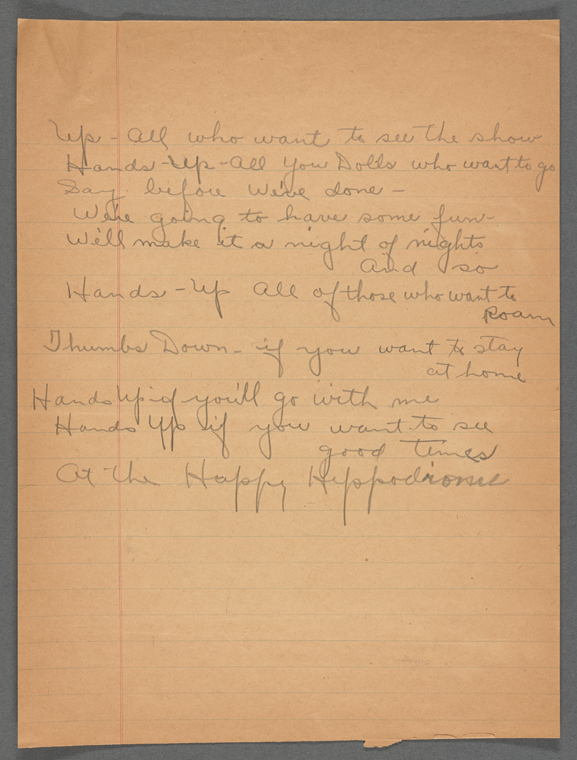 Up - All who want to see the show
Hands - Up - All you Dolls who want to go
Say before We're done -
We're going to have some fun -
We'll make it a night of nights
And so
Hands - Up All of those who want to
Roam
Thumbs Down - if you want to stay
at home
Hands Up if you'll go with me
Hands Up if you want to see
good times
At the Happy Hippodrome